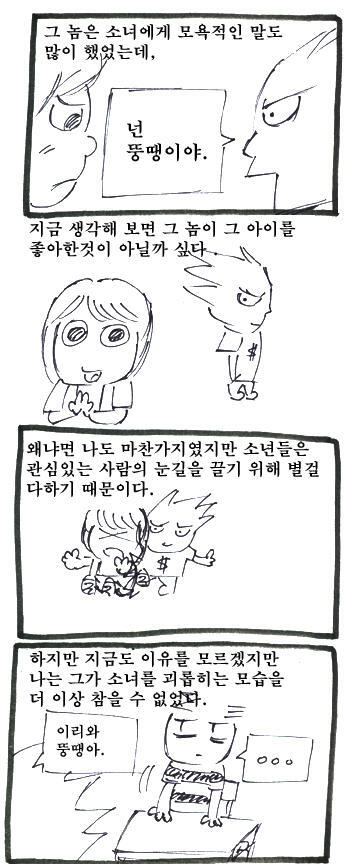 그 놈은 소녀에게 모욕적인 말도
많이 했었는데,
넌
뚱땡이야.
지금 생각해 보면 그 놈이 그 아이를
좋아한것이 아닐까 싶다.
$
왜냐면 나도 마찬가지였지만 소년들은
관심있는 사람의 눈길을 끌기 위해 별걸
다하기 때문이다.
$
하지만 지금도 이유를 모르겠지만
나는 그가 소녀를 괴롭히는 모습을
더 이상 참을 수 없었다.
이리와
뚱땡아.